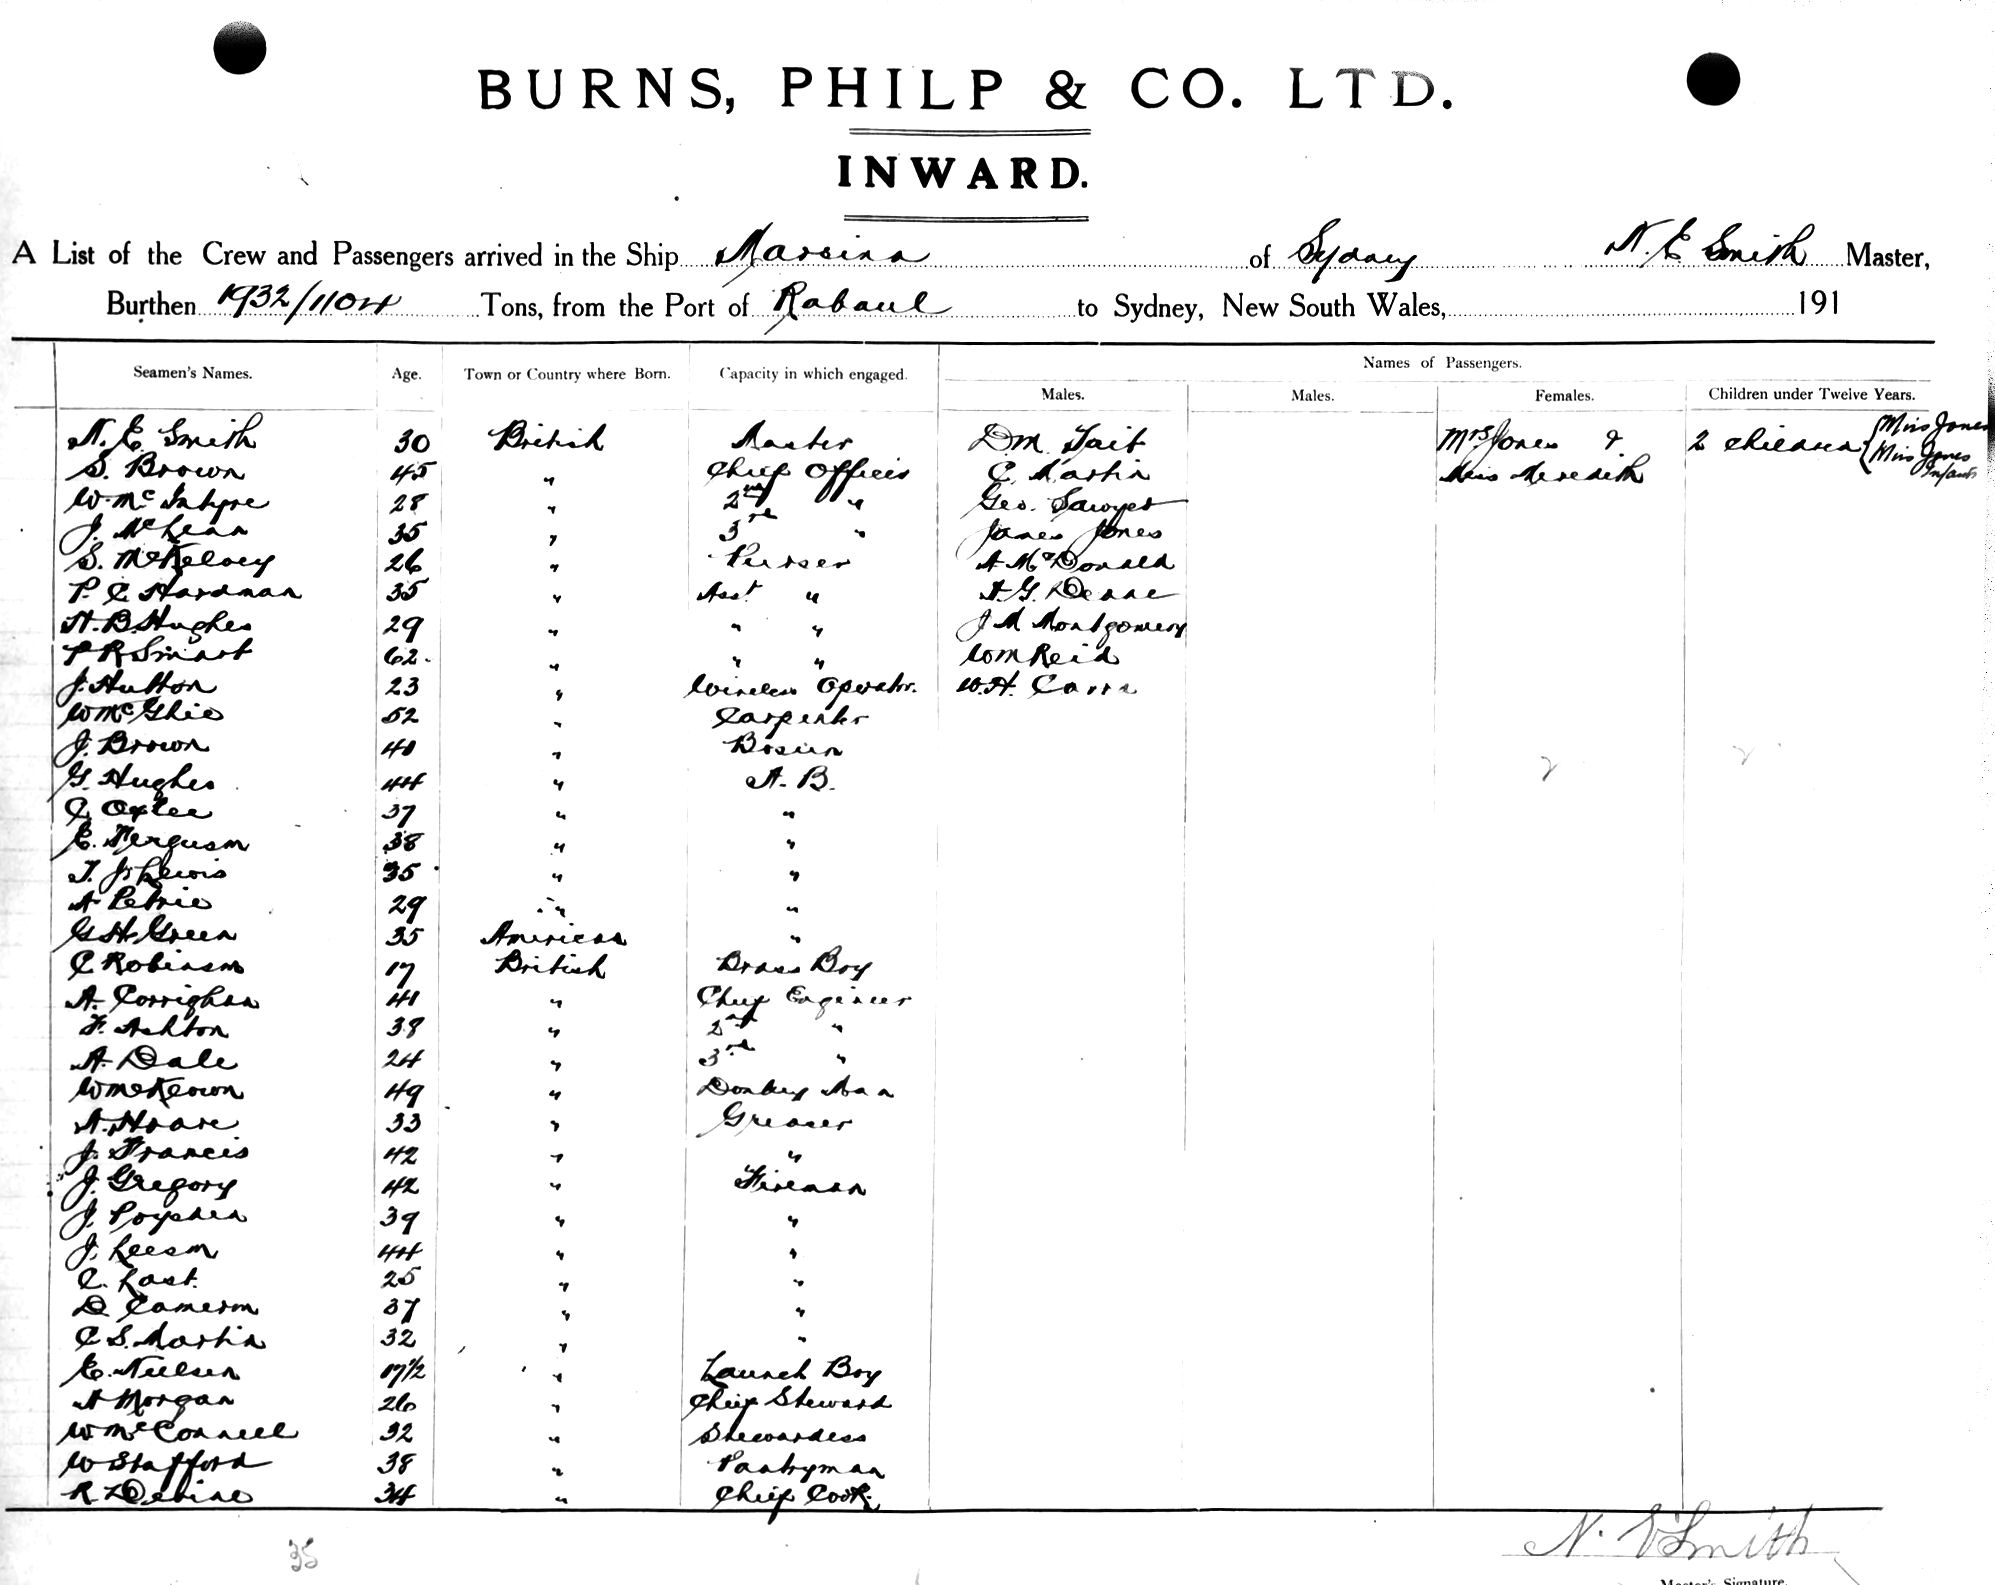 BURNS, PHILP & CO. LTD.
INWARD.
A List of the Crew and Passengers arrived in the Ship Marsina of Sydney N. E Smith Master,
Burthen 1932/1104 Tons, from the Port of Rabaul to Sydney, New South Wales, 191
Names of Passengers.
Seamen's Names. Age. Town or Country where Born. Capacity in which engaged. Males. Males. Females. Children under Twelve Years.
N. E Smith 30 British Master D M Tait Mrs Jones & 2 children { Miss Jones
S. Brown 45 " Chief Officer C. Martin Miss Meredith Miss Jones Infants
W. McIntyre 28 " 2nd " Geo. Sawyer
J. McLean 35 " 3rd " James Jones
S. McKelvey 26 " Purser A McDonald
P. C Hardman 35 " Asst " A. G. Deane
H. B. Hughes 29 " " " J M Montgomery
P R Smart 62 " " " W M Reid
J. Hutton 23 " Wireless Operator. W. H. Carr
W McGhie 52 " Carpenter
J. Brown 40 " Bosun
G. Hughes 44 " A. B.
C Oxlee 37 " "
E. Ferguson 38 " "
T. J. Lewis 35 " "
A Petrie 29 " "
G H Green 35 American "
C Robinson 17 British Brass Boy
A. Corrighan 41 " Chief Engineer
F. Ashton 38 " 2nd "
A. Dale 24 " 3rd "
W McKeown 49 " Donkey Man
A. Hoare 33 " Greaser
J. Francis 42 " "
J. Gregory 42 " Fireman
J. 39 " "
J. Leeson 44 " "
C. Last. 25 " "
D Cameron 37 " "
C S. Martin 32 " "
E. Neilsen 17½ " Launch Boy
A Morgan 26 " Chief Steward
W McConnell 32 " Stewardess
W Stafford 38 " Pantryman
R Devine 34 " Chief Cook.
35
N. E Smith
Master's Signature.